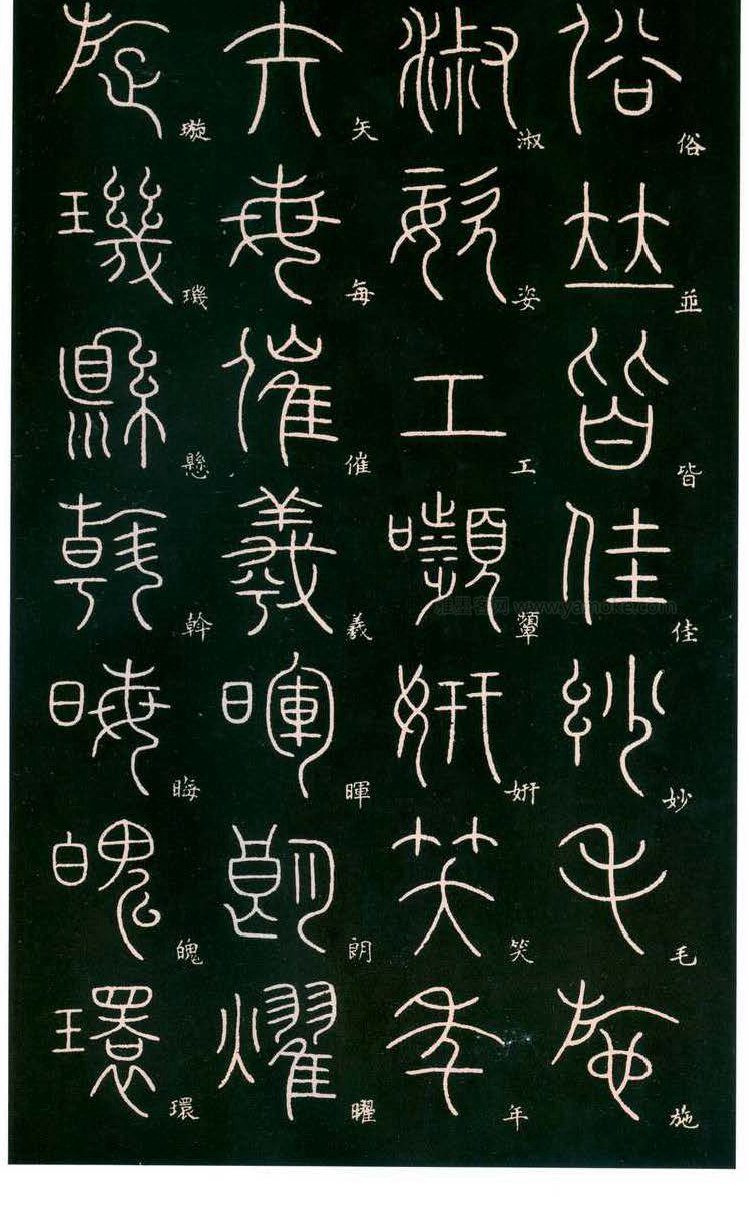 俗並皆佳妙毛施
淑姿工顰妍笑年
矢每催羲暉朗耀
璇璣懸斡晦魄環
雅墨客网 www.yamoke.com